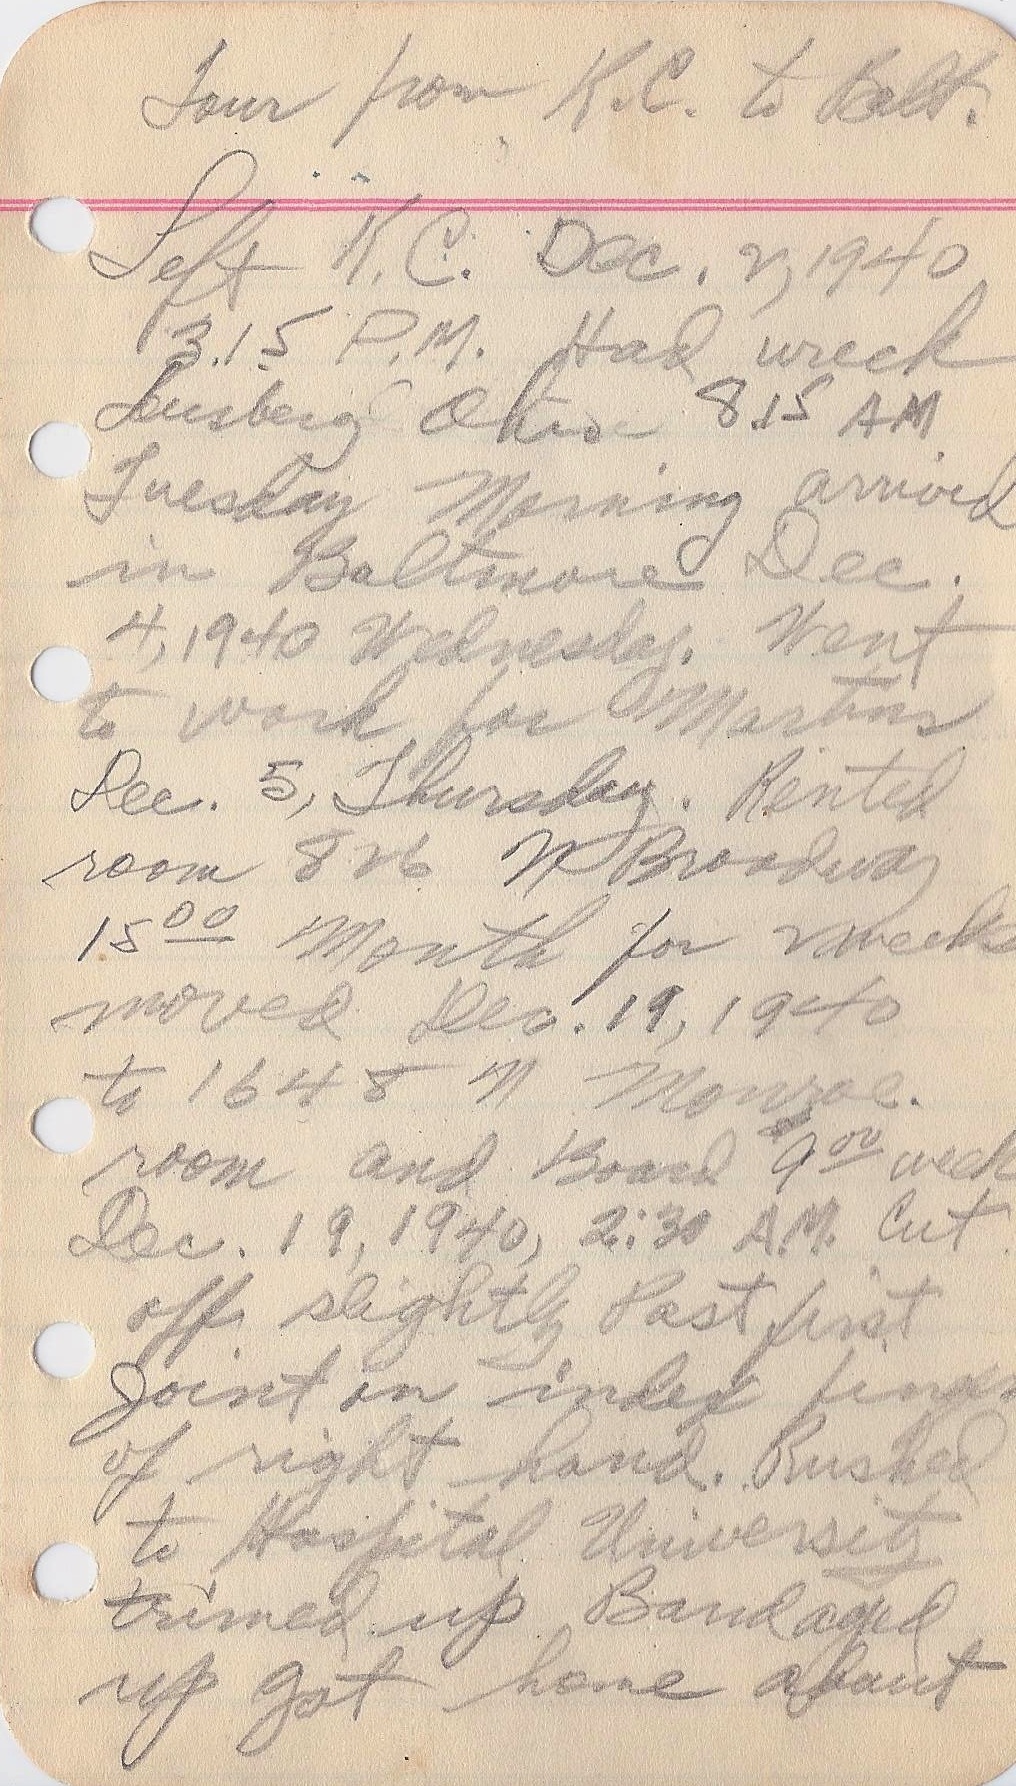 Tour from K.C. to Balt.
Left K.C. Dec. 2, 1940
3.15 P.M. Had wreck
Ohio 8.15 AM
Tuesday Morning arrived
in Baltimore Dec.
4, 1940 Wednesday. Went
to work for Martins
Dec. 5, Thursday. Rented
room 826 N Broadway
15 00 Month for 2 weeks
moved Dec. 19, 1940
to 1648 N Monroe.
room and Board 9 00 week
Dec. 19, 1940, 2:30 A.M. Cut
off slightly Past first
Joint on index finger
of right hand. Rushed
to Hospital University
trimed up Bandaged
up got home about